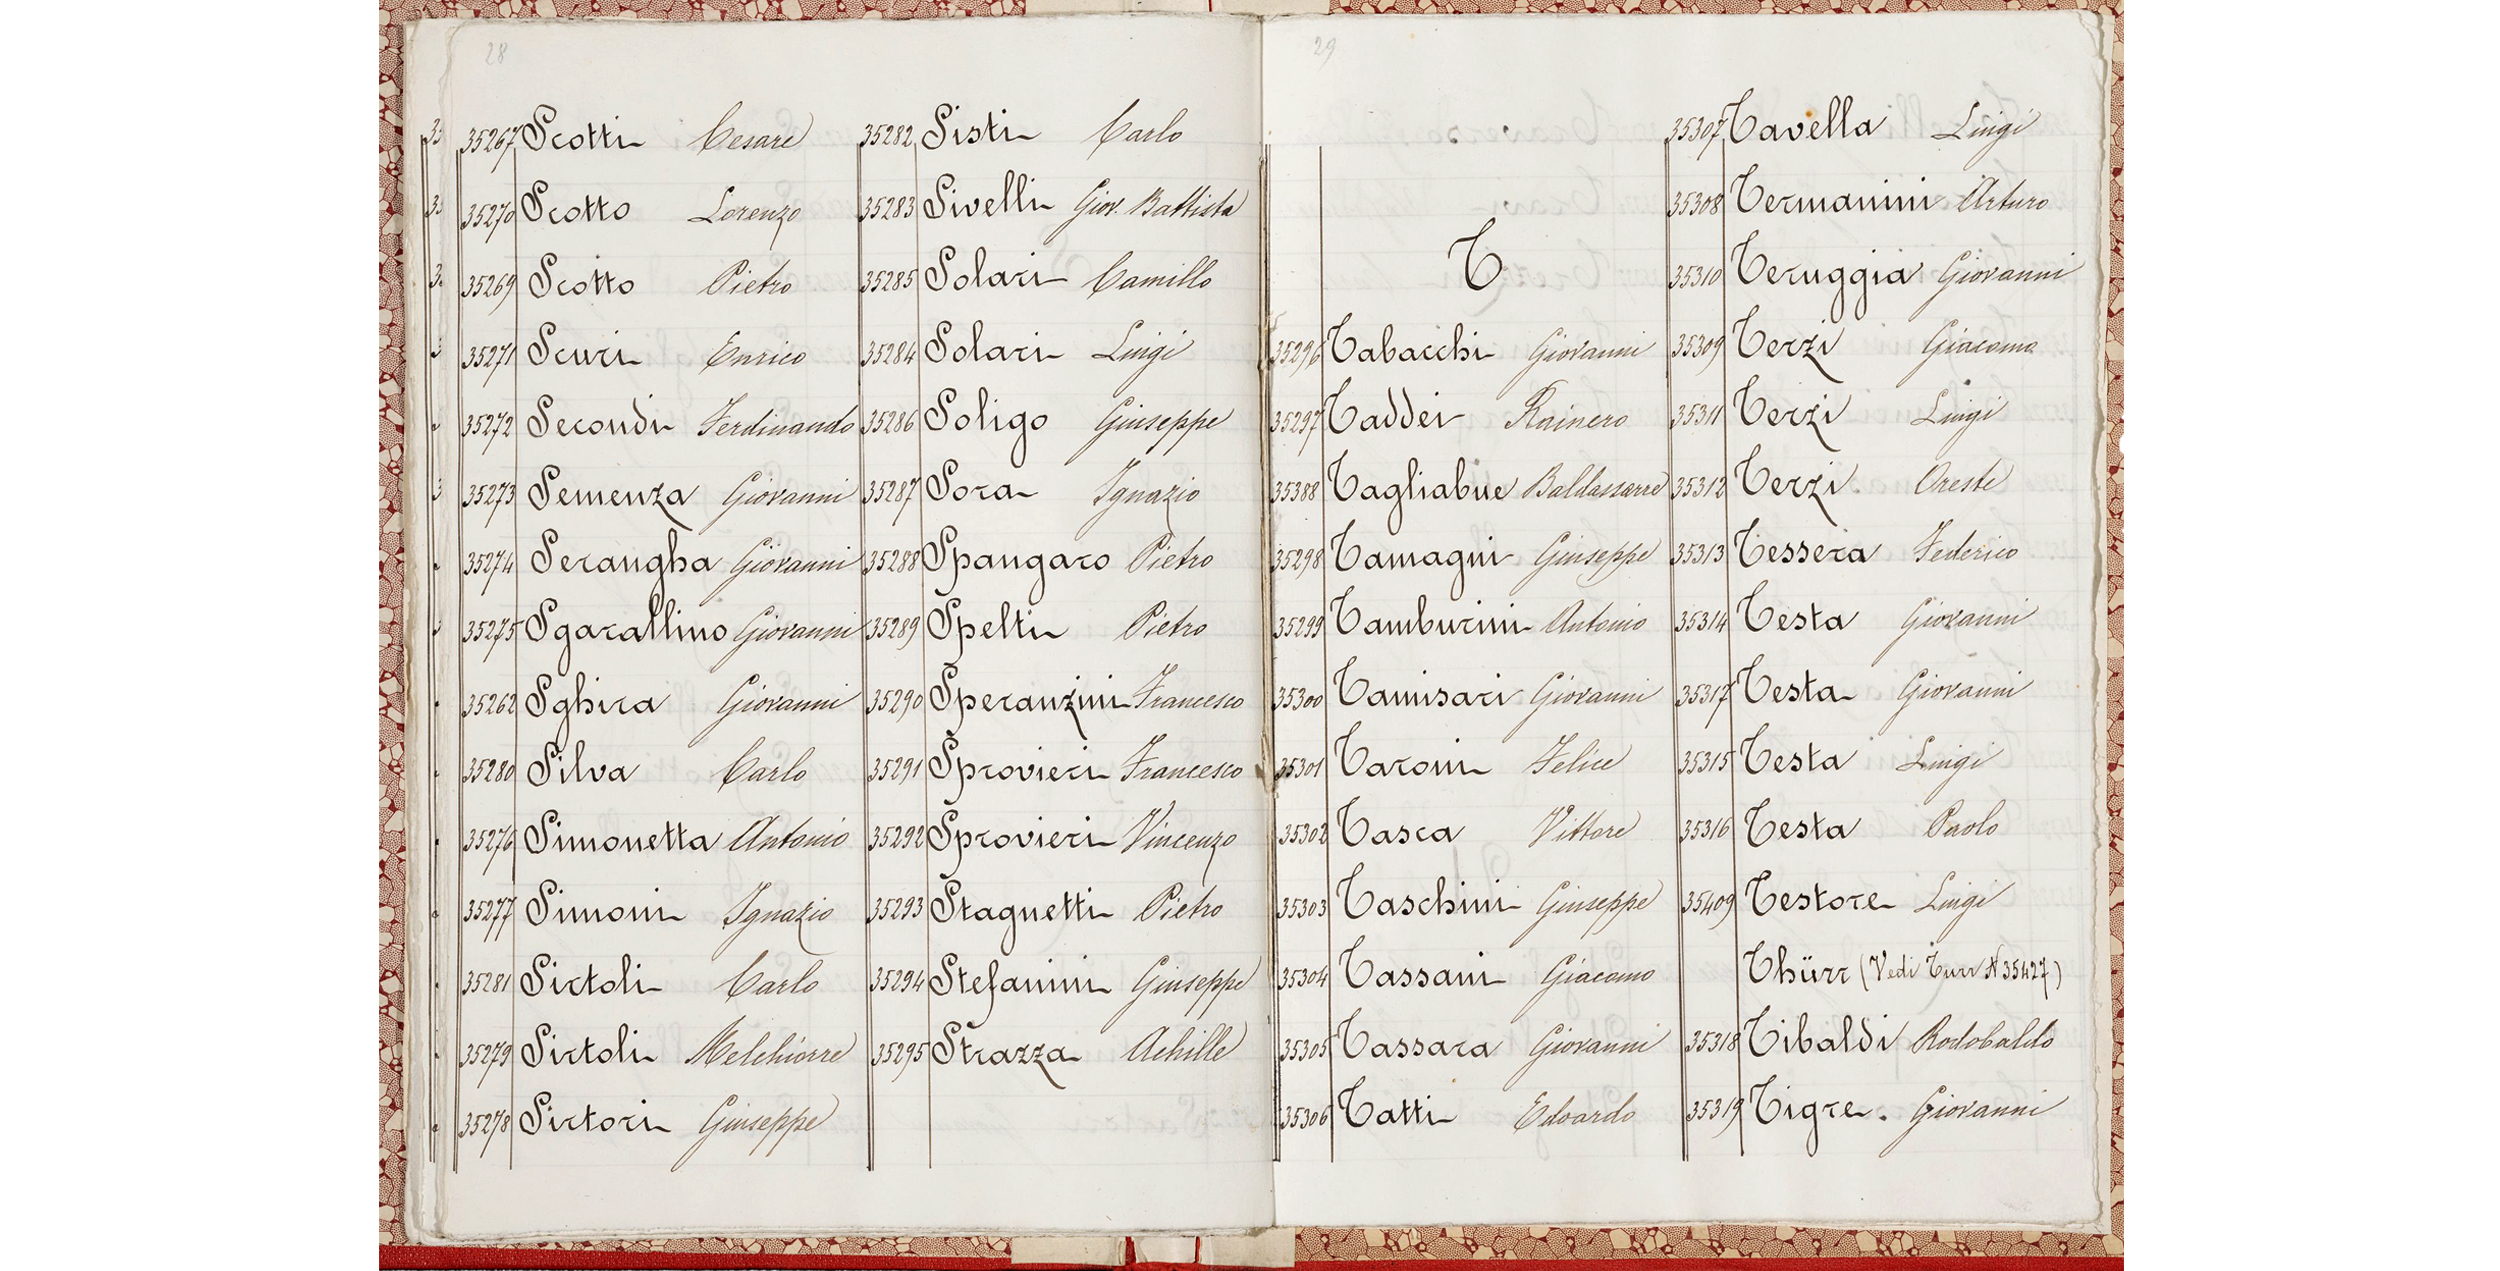 28
35267 Scotti Cesare
35270 Scotto Lorenzo
35269 Scotto Pietro
35271 Scuri Enrico
35272 Secondi Ferdinando
35273 Semenza Giovanni
35274 Serangha Giovanni
35275 Sgarallino Giovanni
35262 Sghira Giovanni
35280 Silva Carlo
35276 Simonetta Antonio
35277 Simoni Ignazio
35281 Sirtoli Carlo
35279 Sirtoli Melchiorre
35278 Sirtori Giuseppe
35282 Sisti Carlo
35283 Sivelli Giov. Battista
35285 Solari Camillo
35284 Solari Luigi
35286 Soligo Giuseppe
35287 Sora Ignazio
35288 Spangaro Pietro
35289 Spelti Pietro
35290 Speranzini Francesco
35291 Sprovieri Francesco
35292 Sprovieri Vincenzo
35293 Stagnetti Pietro
35294 Stefanini Giuseppe
35295 Strazza Achille
29
T
35296 Tabacchi Giovanni
35297 Taddei Rainero
35388 Tagliabue Baldassarre
35298 Tamagni Giuseppe
35299 Tamburini Antonio
35300 Tamisari Giovanni
35301 Taroni Felice
35302 Tasca Vittore
35303 Taschini Giuseppe
35304 Tassani Giacomo
35305 Tassara Giovanni
35306 Tatti Edoardo
35307 Tavella Luigi
35308 Termanini Arturo
35310 Teruggia Giovanni
35309 Terzi Giacomo
35311 Terzi Luigi
35312 Terzi Oreste
35313 Tessera Federico
35314 Testa Giovanni
35317 Testa Giovanni
35315 Testa Luigi
35316 Testa Paolo
35409 Testore Luigi
Thürr (Vedi Turr N 35427)
35318 Tibaldi Rodobaldo
35319 Tigre. Giovanni